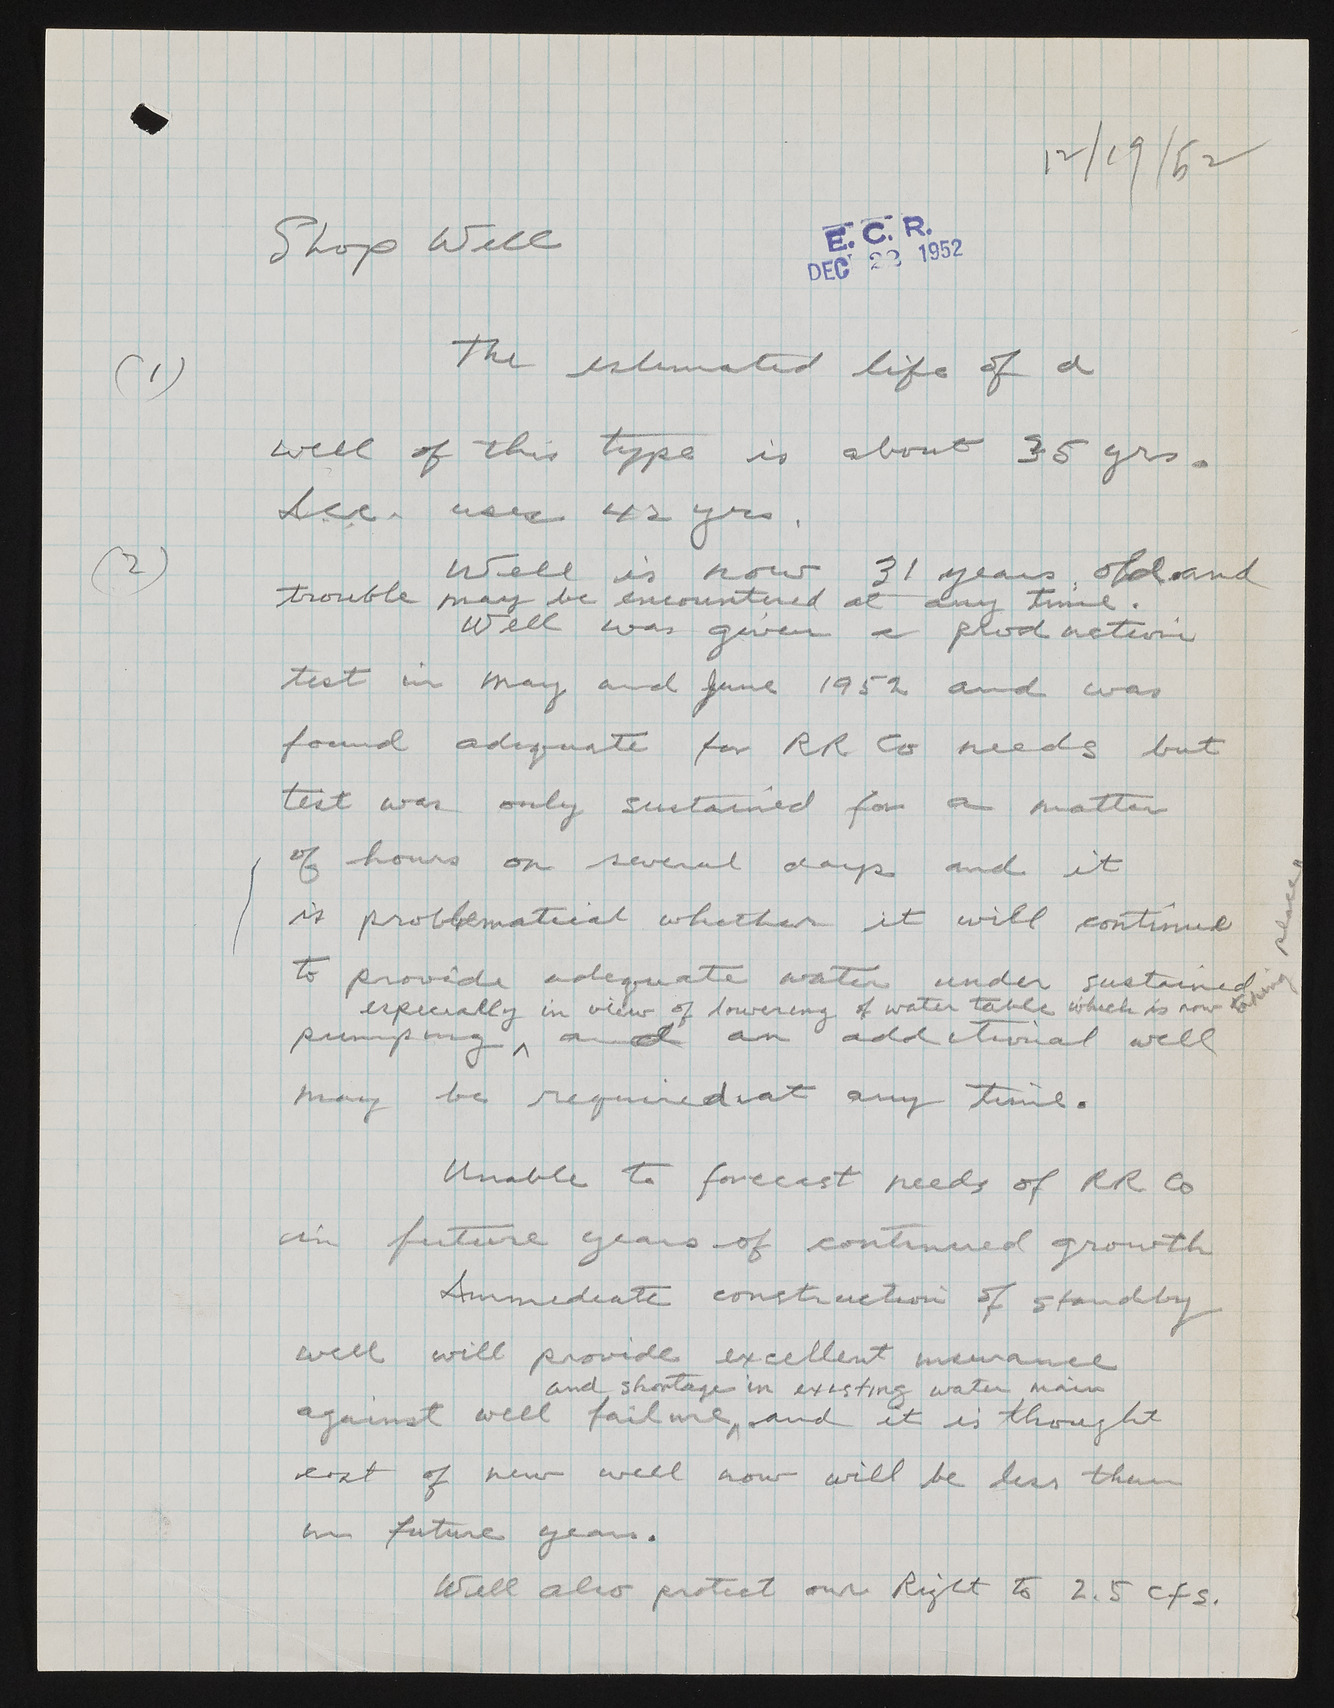 12/19/52
Shop Well
E. C. R.
DEC 23 1952
(1) The estimated life of a
well of this type is about 35 yrs.
Acc. uses 42 yrs.
(2) Well is now 31 years old and
trouble may be encountered at any time.
Well was given a production
test in May and June 1952 and was
found adequate for RR Co needs but
test was only sustained for a matter
of hours on several days and it
is problematical whether it will continue
to provide adequate water under sustained
especially in view of lowering of water table which is now taking place
pumping ^ and an additional well
may be required at any time.
Unable to forecast needs of RR Co
in future years of continued growth
Immediate construction of standby
well will provide excellent insurance
and shortage in existing water main
against well failure ^ and it is thought
cost of new well now will be less than
in future years.
Will also protect our Right to 2.5 cfs.